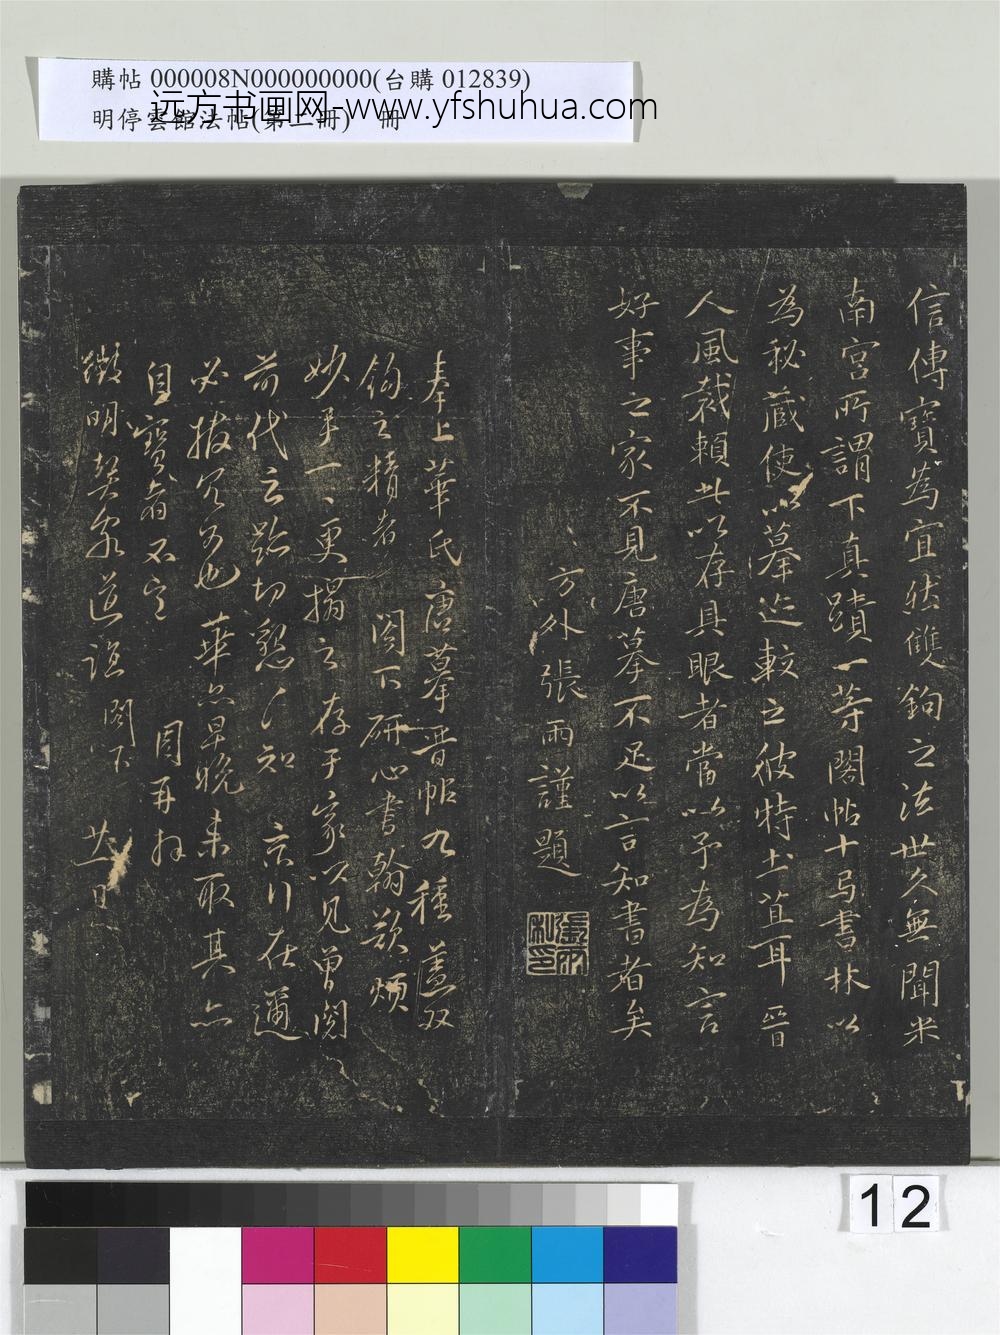 購帖 000008N000000000(台購 012839)
远方书画网-www.yfshuhua.com
明停雲館法帖(第二冊) 冊
信傳寶為宜然雙鉤之法世久無聞米
南宮所謂下真蹟一等閣帖十弓書林以
為秘蔵使以摹迹較之彼特土苴耳晉
人風裁賴此以存具眼者當以予為知言
好事之家不見唐摹不足以言知書者矣
方外張雨謹題
奉上華氏唐摹晉帖九種蓋双
鈎之精者 閣下研心書翰欲煩
妙手一一更搨之存于家以見曽閱
前代之跡切懇〻知 京行在邇
必撥冗為也華亦早晚来取其亦
自寶者不宣 周再拜
徴明契家 閣下 廿一日
12